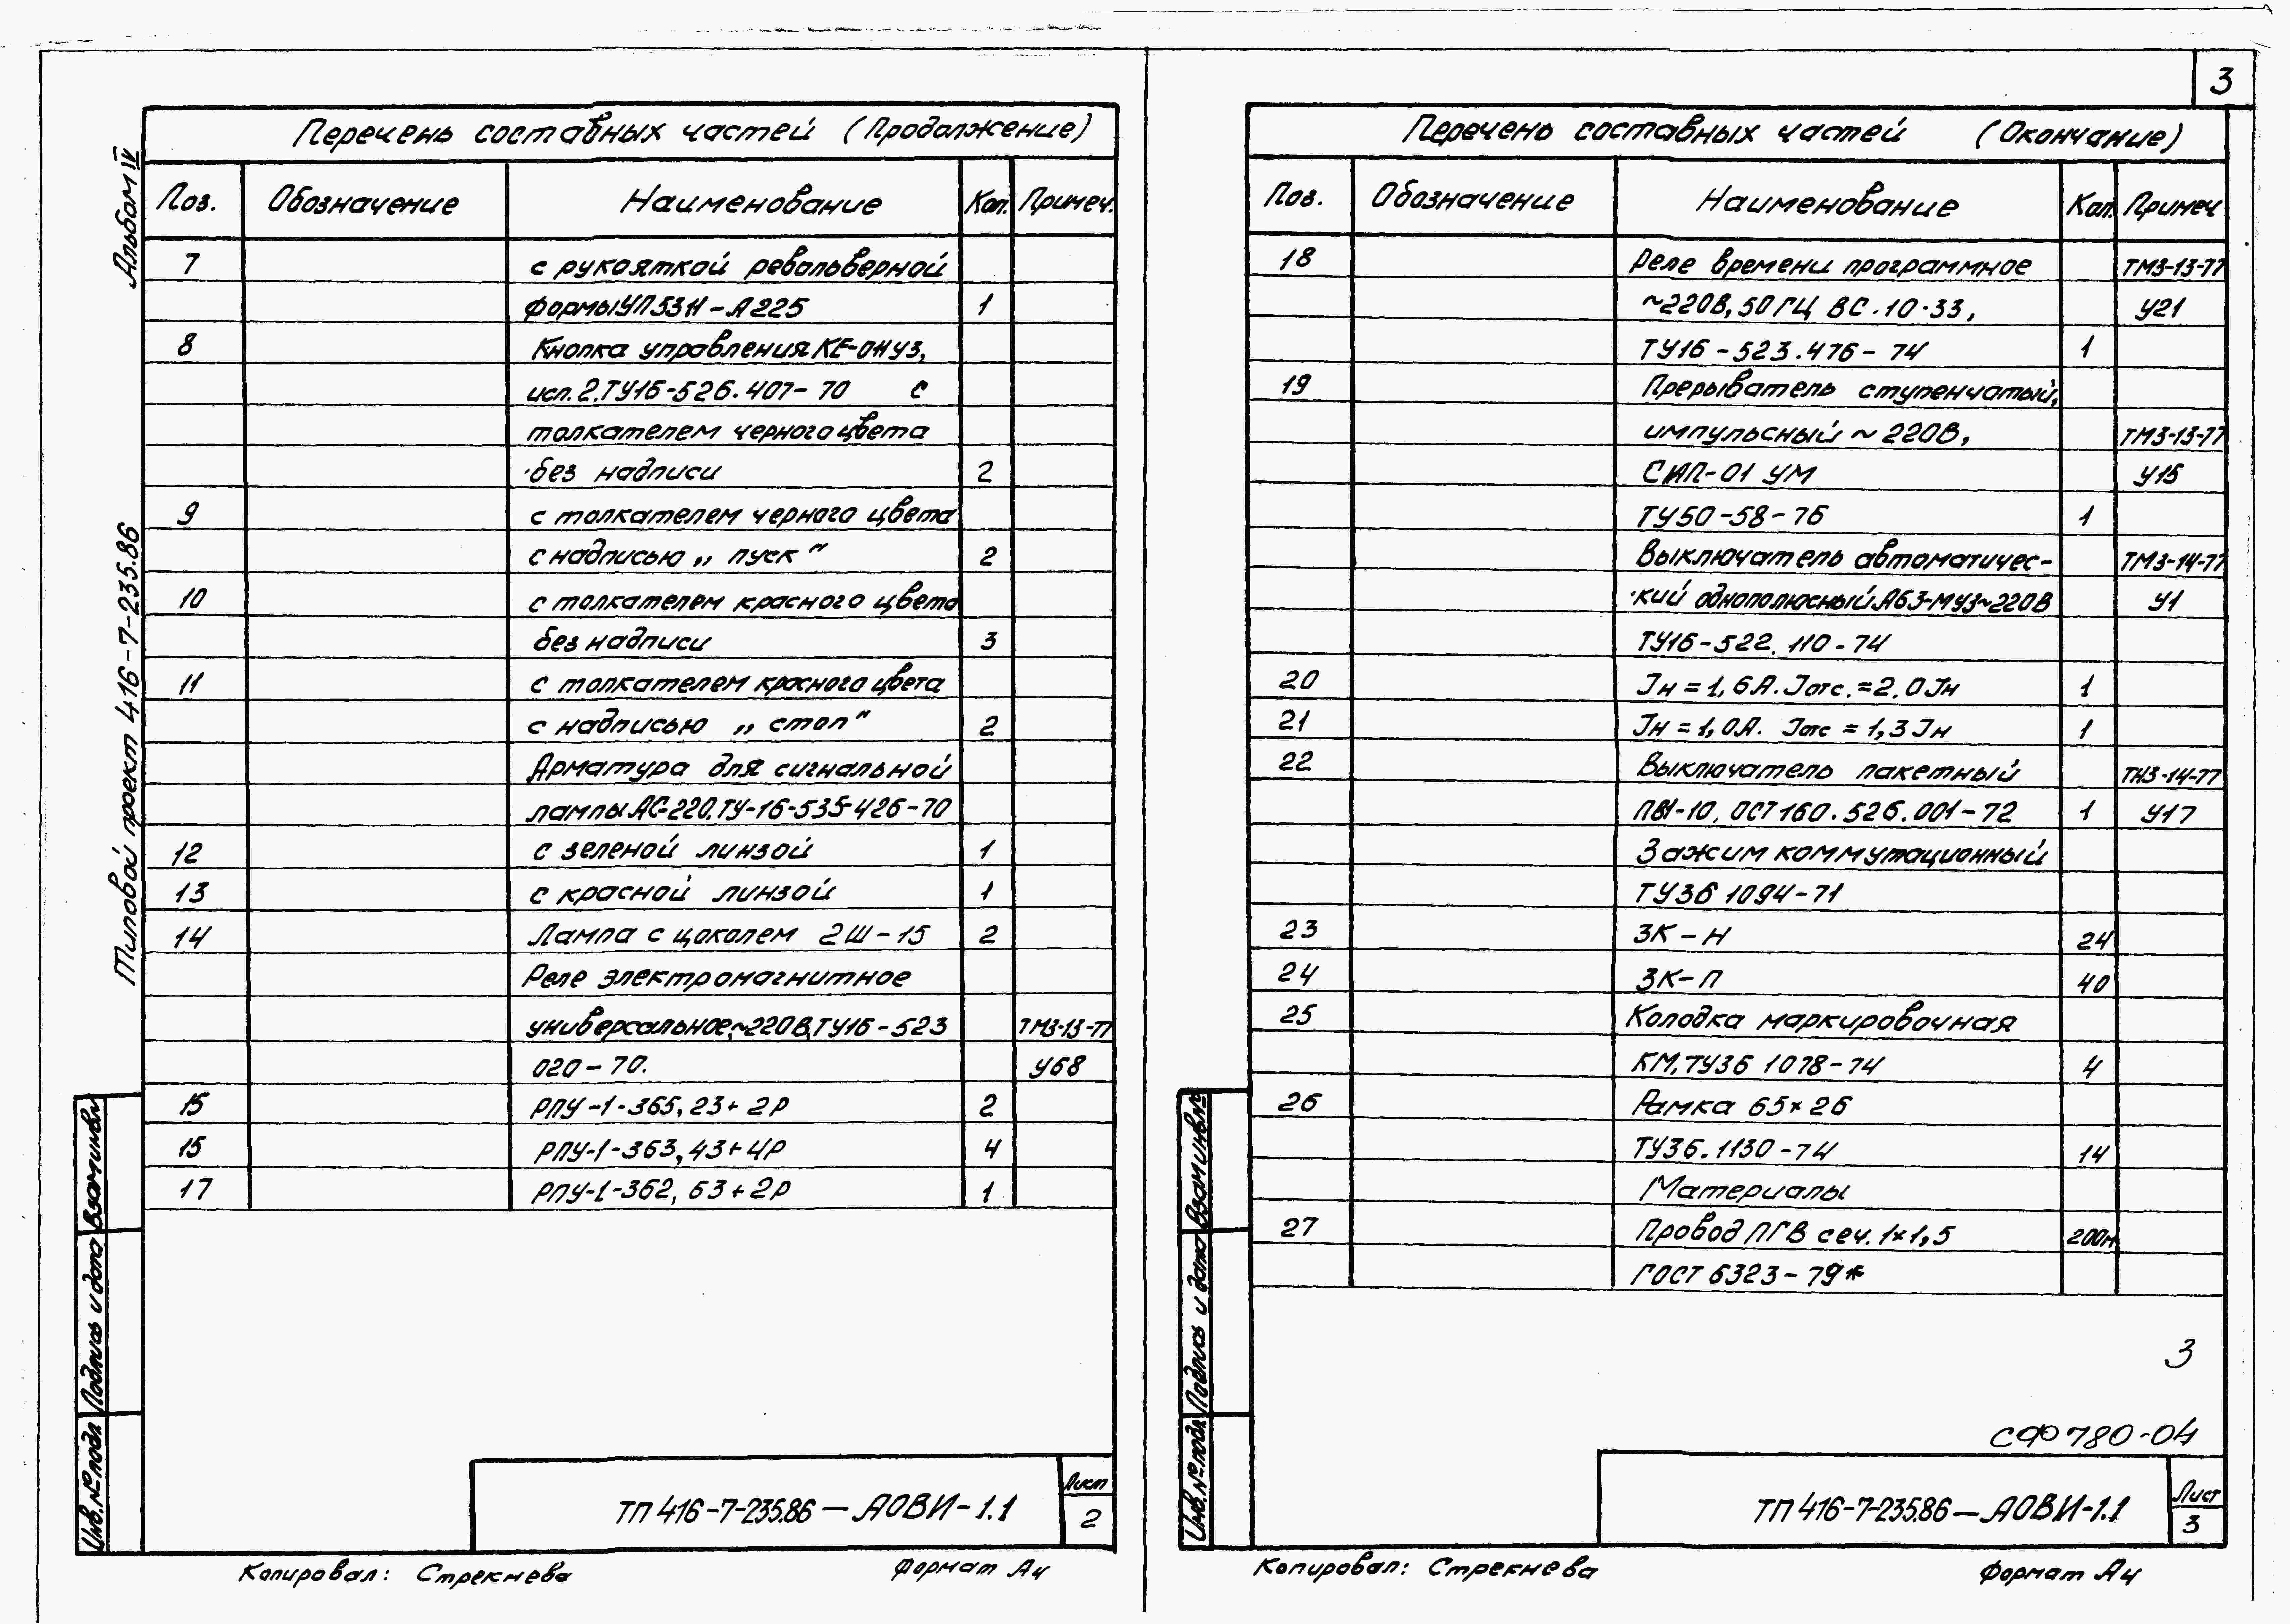 3
Альбом IV
Типовой проект 416-7-235.86
Перечень составных частей (Продолжение)
Поз. Обозначение Наименование Кол. Примеч.
7 с рукояткой револьверной
формы УП5311-А225 1
8 Кнопка управления КЕ-011У3,
исп.2.ТУ16-526.407-70 с
толкателем черного цвета
без надписи 2
9 с толкателем черного цвета
с надписью „пуск" 2
10 с толкателем красного цвета
без надписи 3
11 с толкателем красного цвета
с надписью „стоп" 2
Арматура для сигнальной
лампы АС-220.ТУ-16-535-426-70
12 с зеленой линзой 1
13 с красной линзой 1
14 Лампа с цоколем 2Ш-15 2
Реле электромагнитное
универсальное,~220В,ТУ16-523 ТМ3-13-77
020-70. У68
15 РПУ-1-365, 23+2Р 2
15 РПУ-1-363, 43+4Р 4
17 РПУ-1-362, 63+2Р 1
Взам.инв.№
Подпись и дата
Инв.№ подл.
ТП 416-7-235.86 — АОВИ-1.1
Лист
2
Копировал: Стрекнева Формат А4
Перечень составных частей (Окончание)
Поз. Обозначение Наименование Кол. Примеч
18 Реле времени программное ТМ3-13-77
~220В, 50ГЦ ВС.10.33, У21
ТУ16-523.476-74 1
19 Прерыватель ступенчатый,
импульсный ~220В, ТМ3-13-77
СИП-01 УМ У15
ТУ50-58-76 1
Выключатель автоматичес- ТМ3-14-77
кий однополюсный А63-МУ3~220В У1
ТУ16-522.110-74
20 Jн=1,6А. Jотс.=2.0Jн 1
21 Jн=1,0А. Jотс=1,3Jн 1
22 Выключатель пакетный ТМ3-14-77
ПВ1-10, ОСТ160.526.001-72 1 У17
Зажим коммутационный
ТУ36 1094-71
23 ЗК-Н 24
24 ЗК-П 40
25 Колодка маркировочная
КМ,ТУ36 1078-74 4
26 Рамка 65×26
ТУ36.1130-74 14
Материалы
27 Провод ПГВ сеч. 1×1,5 200м
ГОСТ 6323-79*
3
СФ780-04
Взам.инв.№
Подпись и дата
Инв.№ подл.
ТП 416-7-235.86 — АОВИ-1.1
Лист
3
Копировал: Стрекнева Формат А4